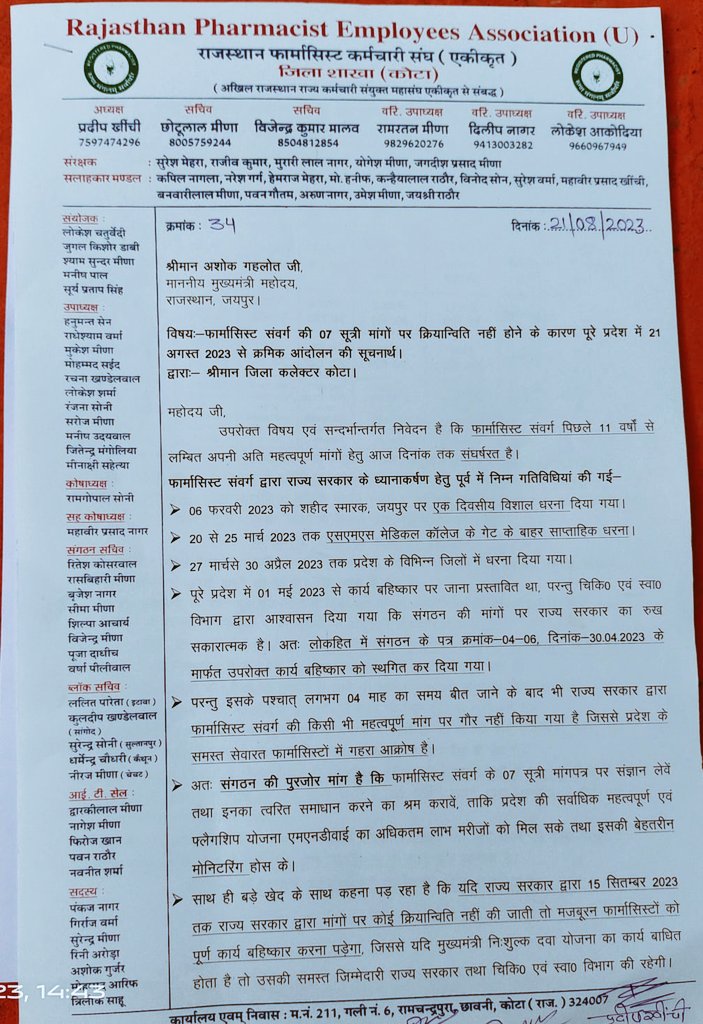 Rajasthan Pharmacist Employees Association (U)
राजस्थान फार्मासिस्ट कर्मचारी संघ ( एकीकृत )
जिला शाखा (कोटा)
( अखिल राजस्थान राज्य कर्मचारी संयुक्त महासंघ एकीकृत से संबद्ध )
अध्यक्ष सचिव सचिव वरि. उपाध्यक्ष वरि. उपाध्यक्ष वरि. उपाध्यक्ष
प्रदीप खींची छोटूलाल मीणा विजेन्द्र कुमार मालव रामरतन मीणा दिलीप नागर लोकेश आकोदिया
7597474296 8005759244 8504812854 9829620276 9413003282 9660967949
संरक्षक : सुरेश मेहरा, राजीव कुमार, मुरारी लाल नागर, योगेश मीणा, जगदीश प्रसाद मीणा
सलाहकार मण्डल : कपिल नागला, नरेश गर्ग, हेमराज मेहरा, मो. हनीफ, कन्हैयालाल राठौर, विनोद सोन, सुरेश वर्मा, महावीर प्रसाद खींची,
बनवारीलाल मीणा, पवन गौतम, अरुण नागर, उमेश मीणा, जयश्री राठौर
संयोजक :
लोकेश चतुर्वेदी
जुगल किशोर डाबी
श्याम सुन्दर मीणा
मनीष पाल
सूर्य प्रताप सिंह
उपाध्यक्ष :
हनुमन्त सेन
राधेश्याम वर्मा
मुकेश मीणा
मोहम्मद सईद
रचना खण्डेलवाल
लोकेश शर्मा
रंजना सोनी
सरोज मीणा
मनीष उदयवाल
जितेन्द्र मंगोलिया
मीनाक्षी सहेत्या
कोषाध्यक्ष :
रामगोपाल सोनी
सह कोषाध्यक्ष :
महावीर प्रसाद नागर
संगठन सचिव :
रितेश कोसरवाल
रासबिहारी मीणा
बृजेश नागर
सीमा मीणा
शिल्पा आचार्य
विजेन्द्र मीणा
पूजा दाधीच
वर्षा पीलीवाल
ब्लॉक सचिव :
ललित पारेता ( इटावा )
कुलदीप खण्डेलवाल
( सांगोद )
सुरेन्द्र सोनी ( सुल्तानपुर )
धर्मेन्द्र चौधरी ( कैथून )
नीरज मीणा ( चेचट )
आई. टी. सेल :
द्वारकीलाल मीणा
नागेश मीणा
फिरोज खान
पवन राठौर
नवनीत शर्मा
सदस्य :
पंकज नागर
गिर्राज वर्मा
सुरेन्द्र मीणा
रिनी अरोड़ा
अशोक गुर्जर
आरिफ
त्रिलोक साहू
क्रमांक : 34 दिनांक : 21/08/2023
श्रीमान अशोक गहलोत जी,
माननीय मुख्यमंत्री महोदय,
राजस्थान, जयपुर।
विषयः-फार्मासिस्ट संवर्ग की 07 सूत्री मांगों पर क्रियान्विति नहीं होने के कारण पूरे प्रदेश में 21
अगस्त 2023 से क्रमिक आंदोलन की सूचनार्थ।
द्वाराः- श्रीमान जिला कलेक्टर कोटा।
महोदय जी,
उपरोक्त विषय एवं सन्दर्भान्तर्गत निवेदन है कि फार्मासिस्ट संवर्ग पिछले 11 वर्षों से
लम्बित अपनी अति महत्वपूर्ण मांगों हेतु आज दिनांक तक संघर्षरत है।
फार्मासिस्ट संवर्ग द्वारा राज्य सरकार के ध्यानाकर्षण हेतु पूर्व में निम्न गतिविधियां की गई-
➤ 06 फरवरी 2023 को शहीद स्मारक, जयपुर पर एक दिवसीय विशाल धरना दिया गया।
➤ 20 से 25 मार्च 2023 तक एसएमएस मेडिकल कॉलेज के गेट के बाहर साप्ताहिक धरना।
➤ 27 मार्चसे 30 अप्रैल 2023 तक प्रदेश के विभिन्न जिलों में धरना दिया गया।
➤ पूरे प्रदेश में 01 मई 2023 से कार्य बहिष्कार पर जाना प्रस्तावित था, परन्तु चिकि0 एवं स्वा0
विभाग द्वारा आश्वासन दिया गया कि संगठन की मांगों पर राज्य सरकार का रुख
सकारात्मक है। अतः लोकहित में संगठन के पत्र क्रमांक-04-06, दिनांक-30.04.2023 के
मार्फत उपरोक्त कार्य बहिष्कार को स्थगित कर दिया गया।
➤ परन्तु इसके पश्चात् लगभग 04 माह का समय बीत जाने के बाद भी राज्य सरकार द्वारा
फार्मासिस्ट संवर्ग की किसी भी महत्वपूर्ण मांग पर गौर नहीं किया गया है जिससे प्रदेश के
समस्त सेवारत फार्मासिस्टों में गहरा आक्रोष है।
➤ अतः संगठन की पुरजोर मांग है कि फार्मासिस्ट संवर्ग के 07 सूत्री मांगपत्र पर संज्ञान लेवें
तथा इनका त्वरित समाधान करने का श्रम करावें, ताकि प्रदेश की सर्वाधिक महत्वपूर्ण एवं
फ्लैगशिप योजना एमएनडीवाई का अधिकतम लाभ मरीजों को मिल सके तथा इसकी बेहतरीन
मोनिटरिंग होस के।
➤ साथ ही बड़े खेद के साथ कहना पड़ रहा है कि यदि राज्य सरकार द्वारा 15 सितम्बर 2023
तक राज्य सरकार द्वारा मांगों पर कोई क्रियान्विति नहीं की जाती तो मजबूरन फार्मासिस्टों को
पूर्ण कार्य बहिष्कार करना पड़ेगा, जिससे यदि मुख्यमंत्री निःशुल्क दवा योजना का कार्य बाधित
होता है तो उसकी समस्त जिम्मेदारी राज्य सरकार तथा चिकि0 एवं स्वा0 विभाग की रहेगी।
कार्यालय एवम् निवास : म.नं. 211, गली नं. 6, रामचन्द्रपुरा, छावनी, कोटा ( राज. ) 324007
23, 14:43